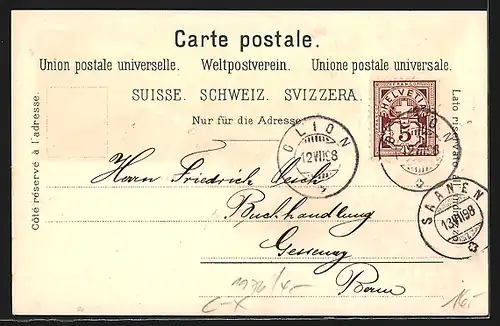 Carte postale.
Union postale universelle. Weltpostverein. Unione postale universale.
SUISSE. SCHWEIZ. SVIZZERA.
Nur für die Adresse.
Côté réservé à l'adresse.
Lato riservato all'indirizzo
HELVETIA
5
GLION
12 VII 98
GLION
12 VII 98
SAANEN
13 VII 98
Herrn Friedrich Uesch
Buchhandlung
Gessenay
Bern
C-X
16.-